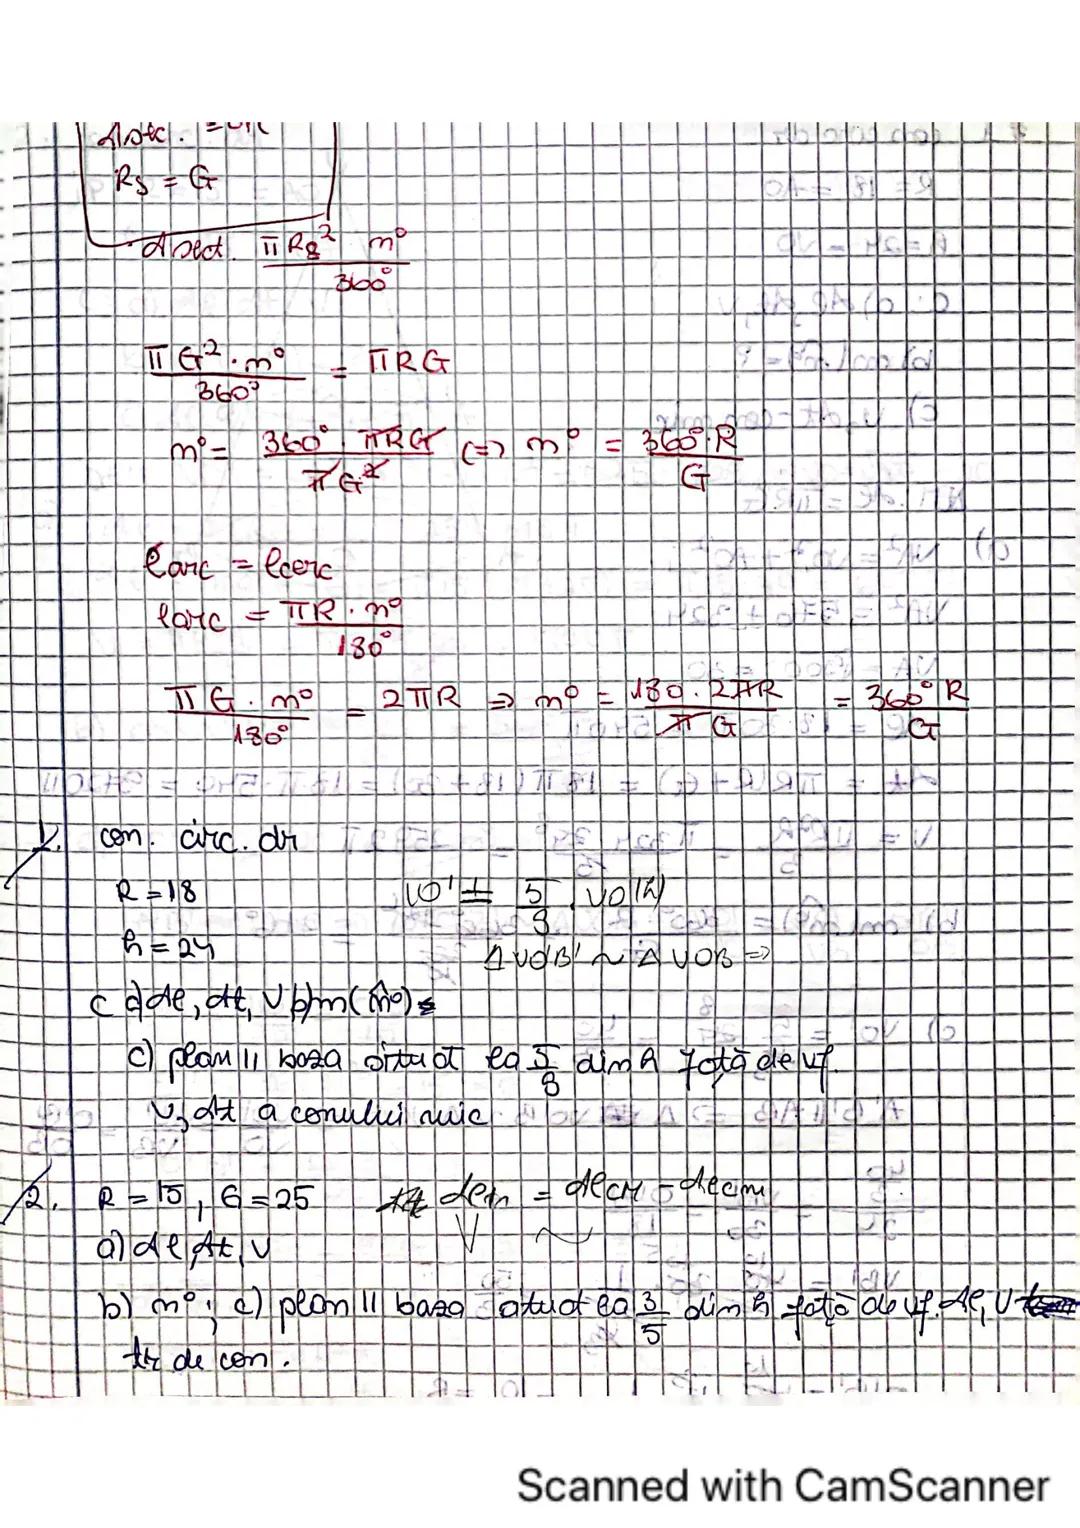 R_s = G
A sect. πR_s² m° / 360°
πG² · m° / 360° = πRG
m° = 360° · πRG / πG² (=) m° = 360° · R / G
larc = lcerc
larc = πR · m° / 180°
πG · m° / 180° = 2πR => m° = 180 · 2πR / πG = 360° R / G
1. con. circ. dr
R = 18 VO' = 5/8 · VO (h)
h = 24 Δ VO'B' ~ Δ VOB =>
a) Al, At, V b) m(m°)
c) plan || baza situat la 5/8 din h față de vf.
V, At a conului mic
2. R = 15, G = 25 Al = AlCM - AlCm
a) Al, At, V
b) m°; c) plan || baza situat la 3/5 din h față de vf. Al, V
tr de con.
Scanned with CamScanner